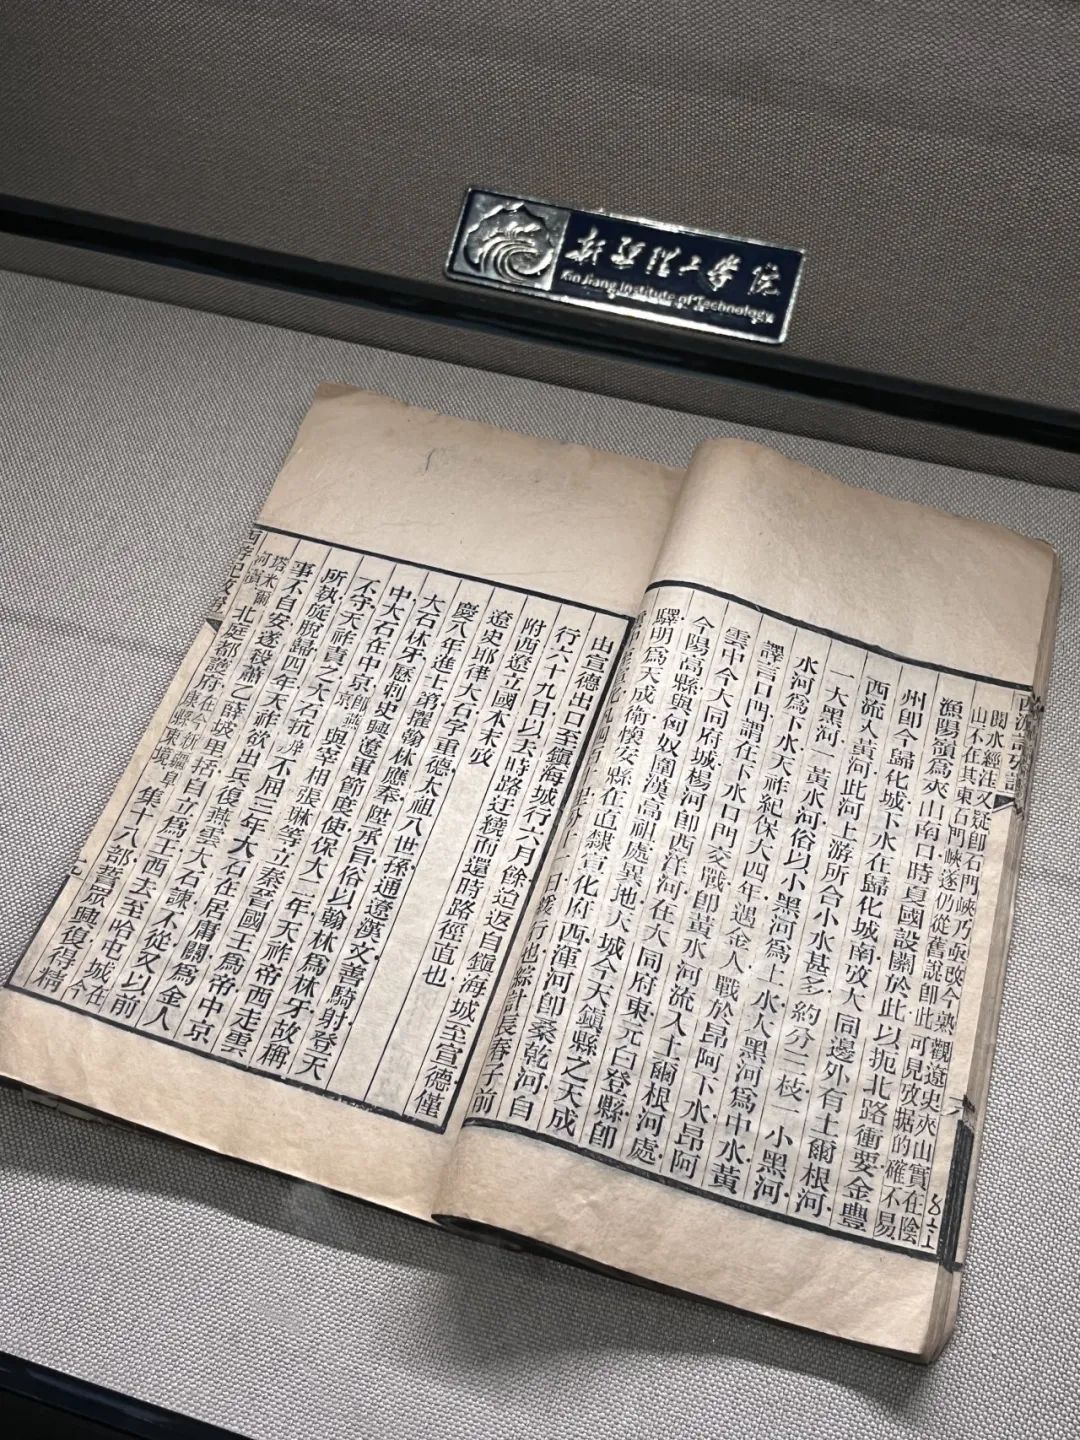 新疆理工学院
XinJiang Institute of Technology
閱水經注又疑卽石門峽乃亟改今熟觀遼史夾山實在陰
山不在其東石門峽遂仍從舊說卽此可見攷据的確不易
漁陽嶺爲夾山南口時夏國設關於此以扼北路衝要金豐
州卽今歸化城下水在歸化城南攷大同邊外有土爾根河
西流入黃河此河上游所合小水甚多約分三枝一小黑河
一大黑河一黃水河俗以小黑河爲上水大黑河爲中水黃
水河爲下水天祚紀保大四年遇金人戰於昂阿下水昂阿
譯言口門謂在下水口門交戰卽黃水河流入土爾根河處
雲中今大同府城楊河卽西洋河在大同府東元白登縣卽
今陽高縣與匈奴圍漢高祖處異地大城今天鎮縣之天成
驛明爲天成衛懷安縣在直隸宣化府西渾河卽桑乾河自
日緩行也綜計長春子前
出宣德出口至鎮海城行六月餘迨返自鎮海城至宣德僅
行六十九日以去時路迂繞而還時路徑直也
附西遼立國本末攷
遼史耶律大石字重德太祖八世孫通遼漢文善騎射登天
慶八年進士第擢翰林應奉陞承旨俗以翰林爲林牙故稱
大石林牙歷刺史興遼軍節度使保大二年天祚帝西走雲
中大石在中京卽燕京與宰相張琳等立秦晉國王爲帝中京
不守天祚責之大石抗辨不屈三年大石在居庸關爲金人
所執旋脫歸四年天祚欲出兵復燕雲大石諫不從又以前
事不自安遂殺蕭乙薛坡里括自立爲王西去至哈屯城在今
塔米爾河濱北庭都護府在今阜康縣東境集十八部誓眾興復得精
西游記攷證
九